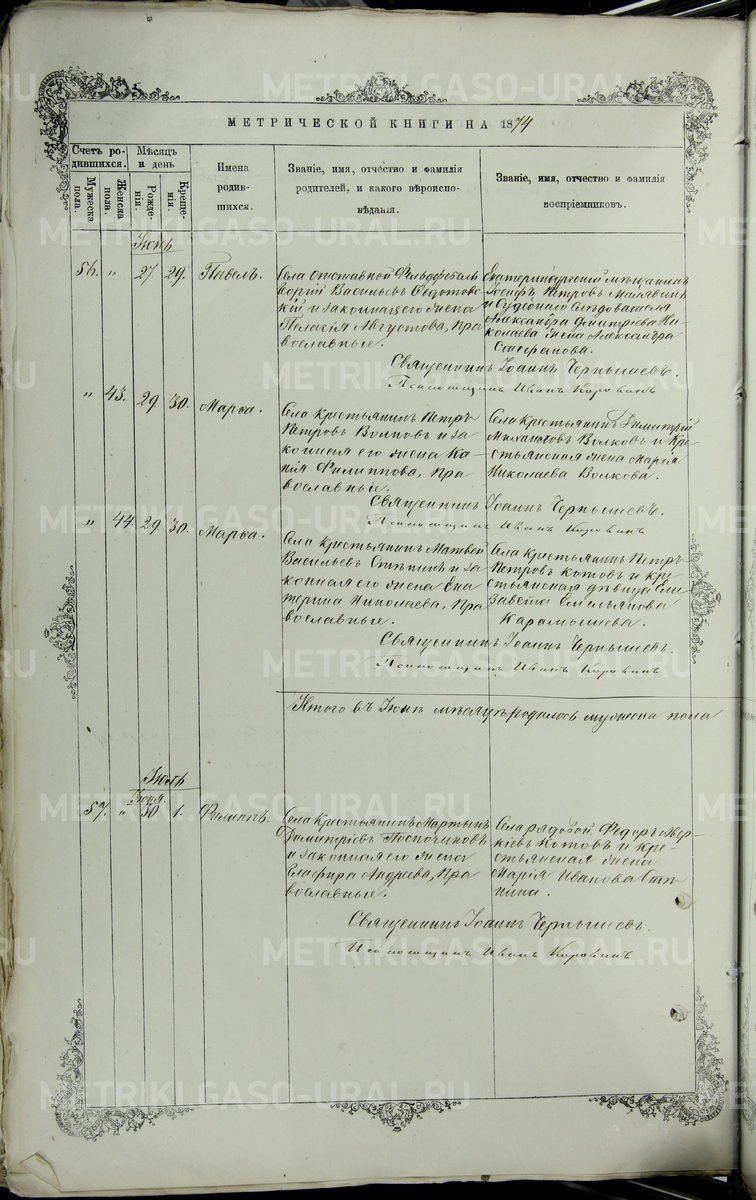 МЕТРИЧЕСКОЙ КНИГИ НА 1874
Счетъ ро-
дившихся.
Мѣсяцъ
и день
Мужеска
пола.
Женска
пола.
Рожде-
нія.
Креще-
нія.
Имена
родив-
шихся.
Званіе, имя, отчество и фамилія
родителей, и какого вѣроиспо-
вѣданія.
Званіе, имя, отчество и фамилія
воспріемниковъ.
Іюнь
56. " 27 29. Павелъ.
Села отставной Фельдфебель
Георгій Васильевъ
и законная его жена
Пелагія Августова, пра
вославные.
Екатеринбургскій мѣщанинъ
Іосифъ Петровъ Малявинъ
и Судебнаго Слѣдователя
Александра Дмитріева Ни-
колаева жена Александра
Стефанова.
Священникъ Іоаннъ Чернышевъ.
Псаломщикъ Иванъ Коровинъ
" 43. 29 30. Марѳа.
Села крестьянинъ Петръ
Петровъ Волковъ и за
конная его жена
Филиппова, пра
вославные.
Села крестьянинъ Димитрій
Михаиловъ Волковъ и кре-
стьянская жена Марія
Николаева Волкова.
Священникъ Іоаннъ Чернышевъ.
Псаломщикъ Иванъ Коровинъ
" 44. 29 30. Марѳа.
Села крестьянинъ Матвей
Васильевъ и за
конная его жена Ека
терина Николаева, пра
вославные.
Села крестьянинъ Петръ
Петровъ Котовъ и кре
стьянская дѣвица Ели
завета Емельянова
Карамышева.
Священникъ Іоаннъ Чернышевъ.
Псаломщикъ Иванъ Коровинъ
Итого въ Іюнѣ мѣсяцѣ родилось мужеска пола
Іюль
Іюня.
57. " 30 1. Филиппъ.
Села крестьянинъ Мартынъ
Димитріевъ
и законная его жена
Глафира Андреева, пра
вославные.
Села рядовой Федоръ
Котовъ и кре-
стьянская жена
Марія Иванова
Священникъ Іоаннъ Чернышевъ.
Псаломщикъ Иванъ Коровинъ
METRIKI.GASO-URAL.RU